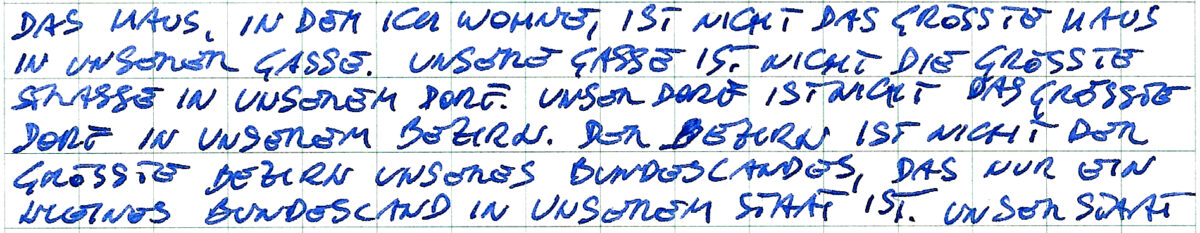 DAS HAUS, IN DEM ICH WOHNE, IST NICHT DAS GRÖSSTE HAUS
IN UNSERER GASSE. UNSERE GASSE IST NICHT DIE GRÖSSTE
STRASSE IN UNSEREM DORF. UNSER DORF IST NICHT DAS GRÖSSTE
DORF IN UNSEREM BEZIRK. DER BEZIRK IST NICHT DER
GRÖSSTE BEZIRK UNSERES BUNDESLANDES, DAS NUR EIN
KLEINES BUNDESLAND IN UNSEREM STAAT IST. UNSER STAAT